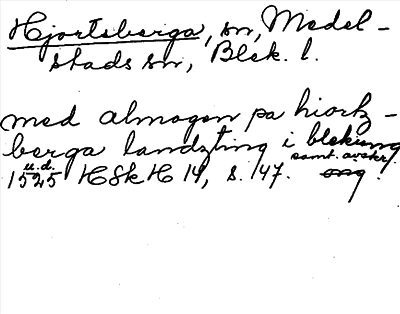 Hjortsberga, sn, Medel-
stads sn, Blek. l.
med almogen pa hiortz-
berga landzting i blekung
u.d. samt. avskr.
1525 HSkH 14, s. 147. orig.